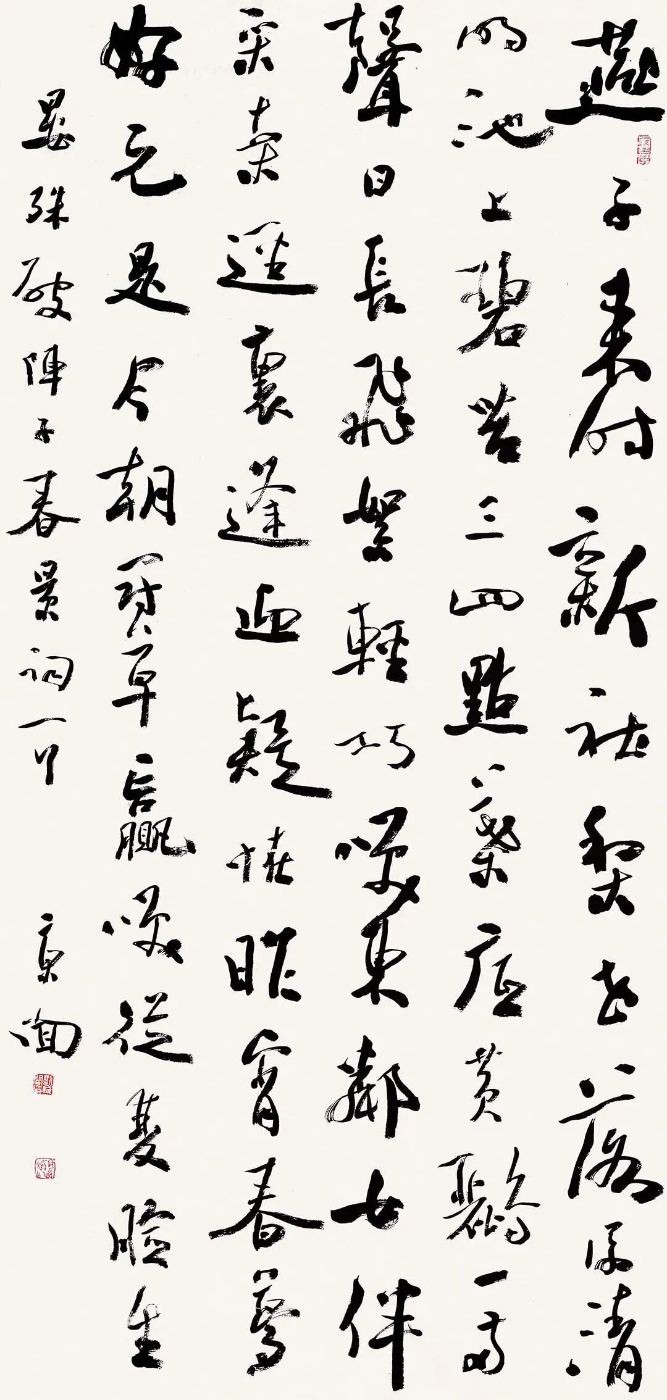 燕子來時新社梨花落後清
明池上碧苔三四點葉底黃鸝一兩
聲日長飛絮輕巧咲東鄰女伴
采桑逕裏逢迎疑恠昨宵春夢
好元是今朝鬥草贏咲從雙臉生
晏殊破陣子春景詞一